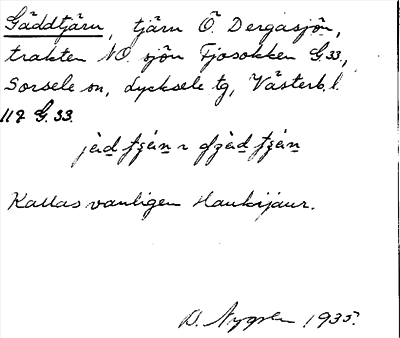 Gäddtjärn, tjärn Ö. Dergasjön,
trakten NO. sjön Fjosokken G.33,
Sorsele sn, Lycksele tg, Västerb. l.
117 G. 33.
Kallas vanligen Haukijaur.
D. 1935.